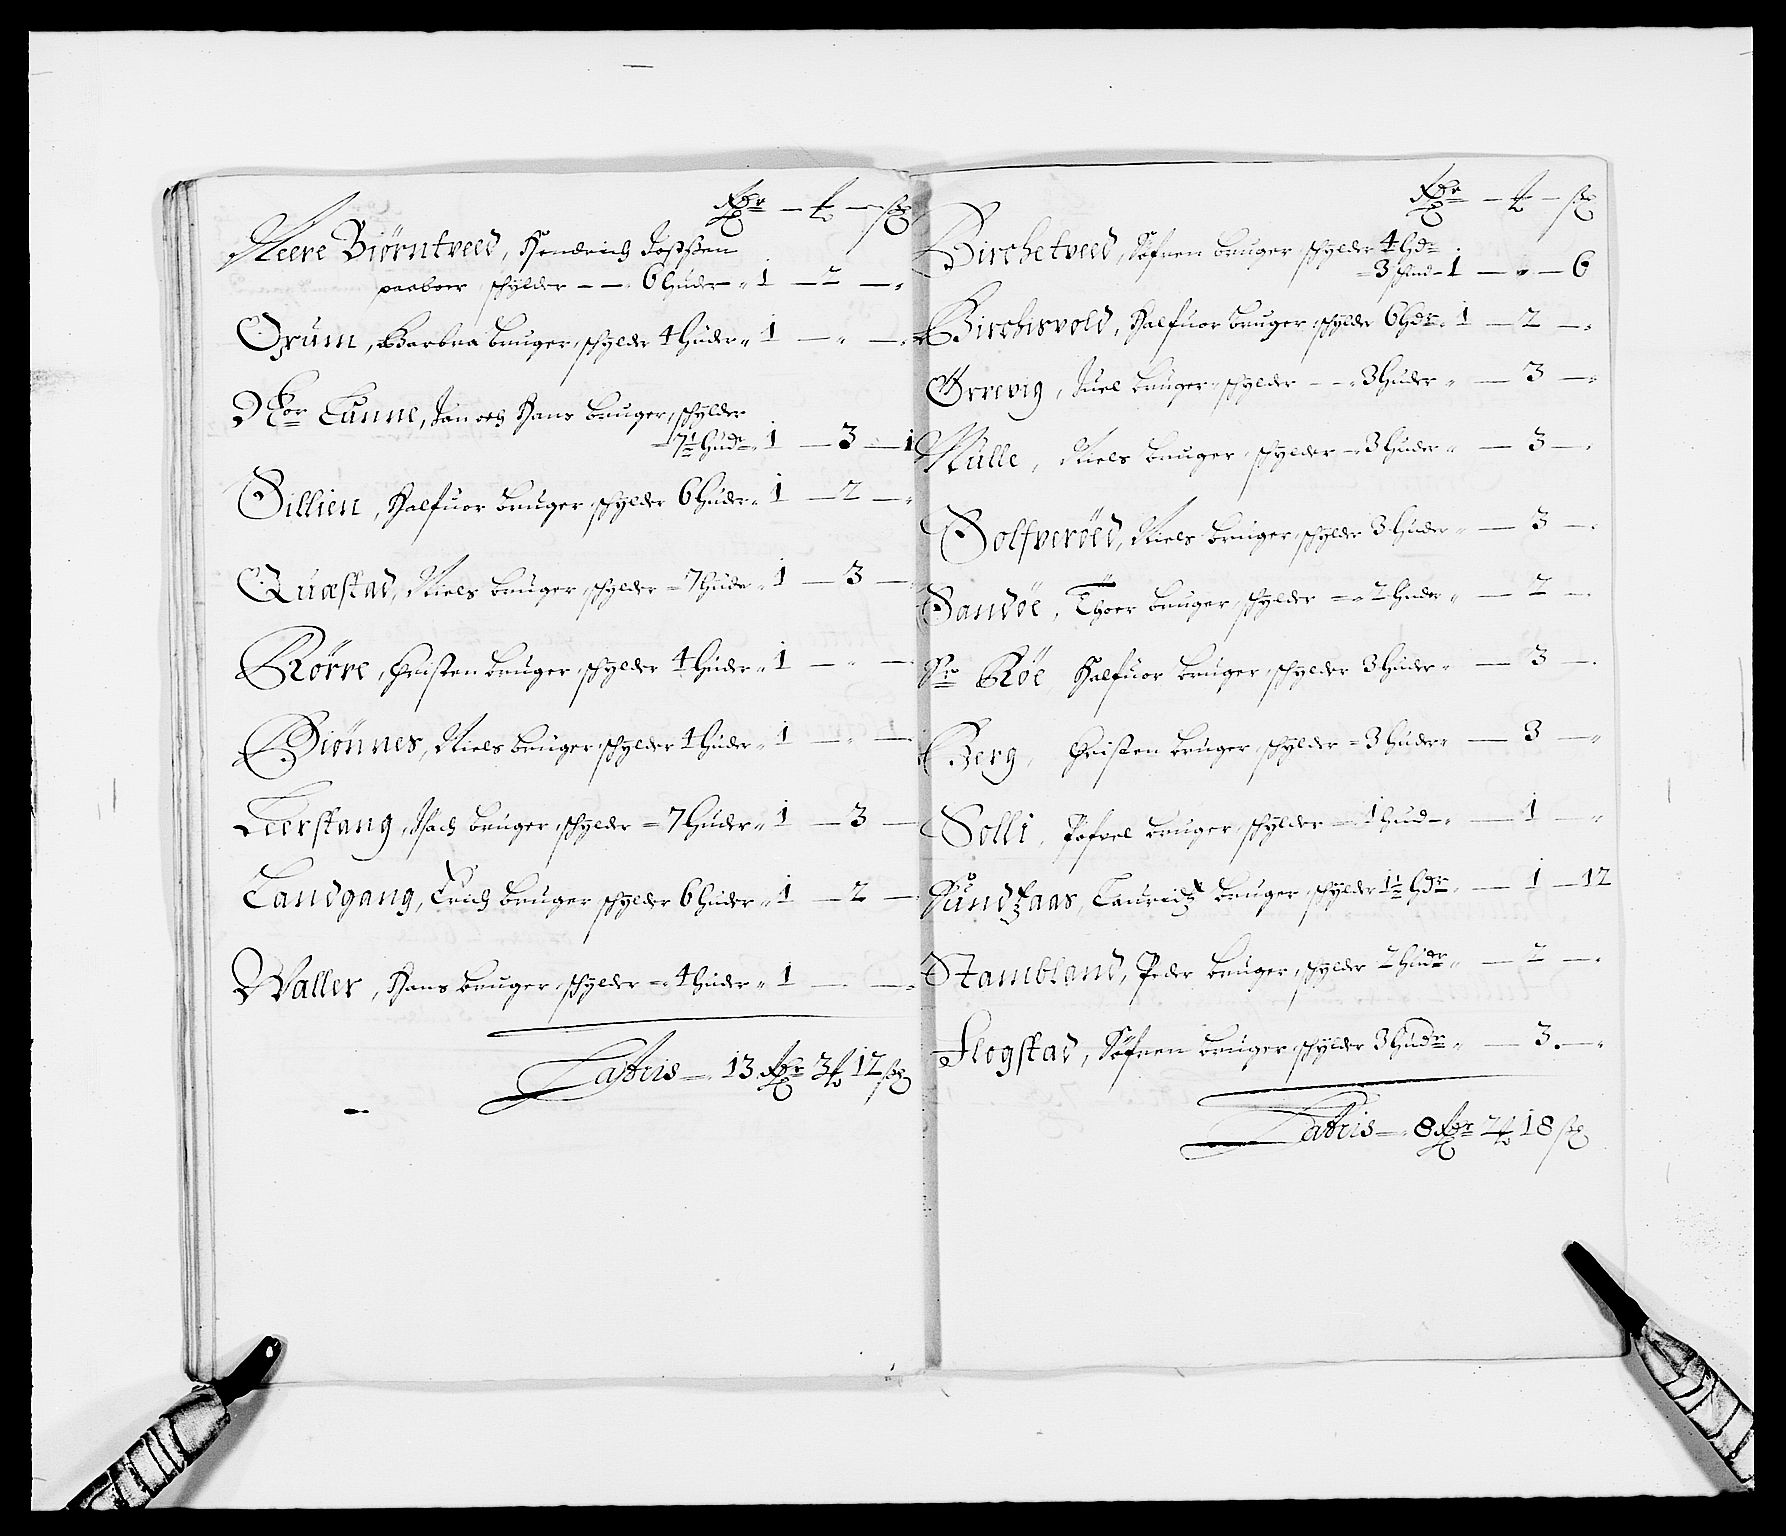 Rdr — ₰ — sk
Neere Biørntveed, Hendrich Joshsen
paaboer schylder — — 6 huder „ 1 — 2 — „
Orum, Barbra bruger, schylder 4 huder „ 1 — „ — „
Nor Tanne, Jan och Hans bruger, schylder
7½ hudr „ 1 — 3 — 1
Sillien, Halfuor bruger schylder 6 huder „ 1 — 2 — „
Quæstad, Niels bruger schylder = 7 huder „ 1 — 3 —
Rørre, Christen bruger, schylder 4 huder „ 1 — „ —
Biønnes, Niels bruger schylder 4 huder „ 1 — „ —
Leerstang, Isach bruger, schylder = 7 huder „ 1 — 3 —
Landgang, Erich bruger schylder 6 huder „ 1 — 2 —
Waller, Hans bruger, schylder = 4 huder „ 1 — . — „
Lateris — 13 Rdr 3 ₰ 12 sk
Rdr — ₰ — sk
Birchetveed, Søfren bruger schylder 4 hdr
= 3 schind = 1 — „ — 6
Birchisvold, Halfuor bruger, schylder 6 hdr „ 1 — 2 — „
Ørrevig, Juel bruger, schylder — — 3 huder „ — 3 — „
Mülle, Niels bruger, schylder — 3 huder „ — 3 — „
Solfverøed, Niels bruger, schylder 3 huder „ — 3 — „
Sandøe, Thoer bruger, schylder = 2 huder „ — 2 — „
Nr Røe Halfuor bruger, schylder 3 huder „ — 3 — „
Berg, Christen bruger, schylder = 3 huder — 3 — „
Solli, Pofvel bruger, schylder — 1 hud — „ — 1 — „
Sundzaas, Lauridz bruger, schylder 1½ hdr „ — 1 — 12
Stambland, Peder bruger, schylder 2 hudr „ — 2 — „
Flogstad, Søfren bruger schylder 3 hudr „ — 3 . — „
Lateris — 8 Rdr 2 ₰ 18 sk